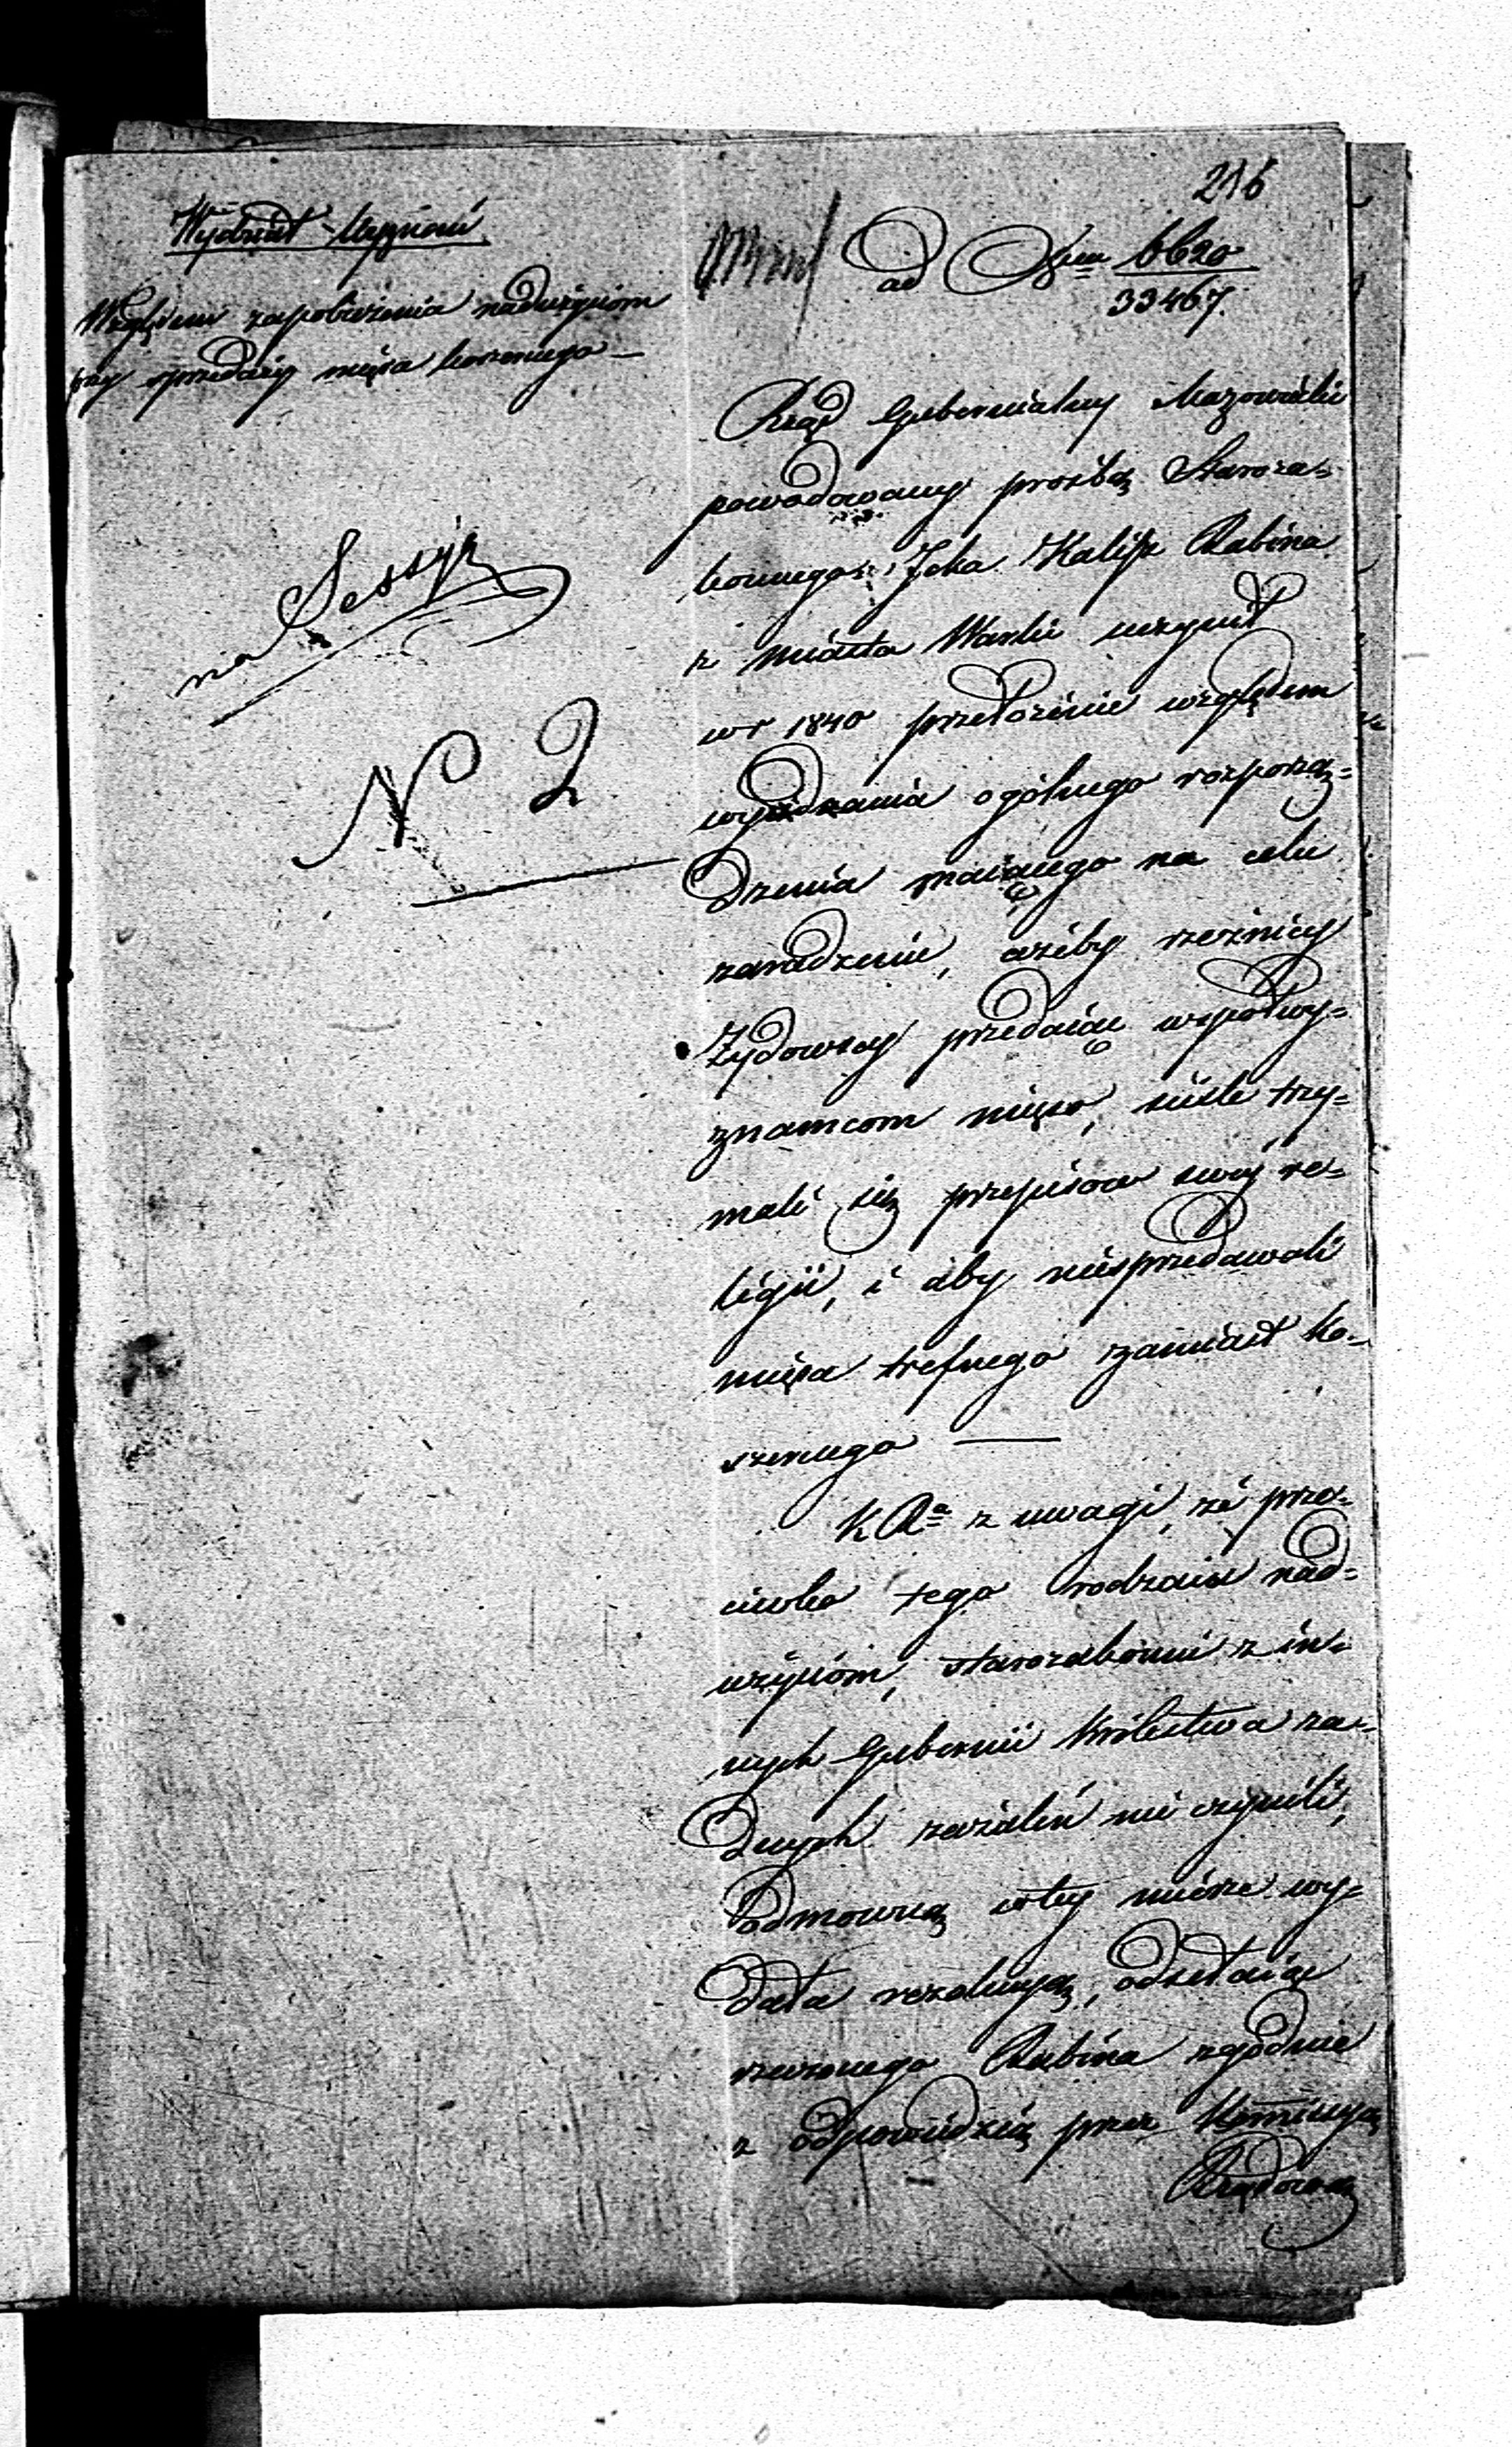 216
Wydział Wyznań
ad Nrum 6620
33467.
Względem zapobieżenia nadużyciom
przy sprzedaży mięsa koszernego —
na Sessyą
N 2
Rząd Gubernialny Mazowiecki
powodowany prozbą Staroza=
konnego Icka Kalisz Rabina
z miasta Warki uczynił
w r 1840 przełożenie względem
wyiednania ogólnego rozporzą=
dzenia maiącego na celu
zaradzenie, ażeby rzeźnicy
Żydowscy przedaiąc współwy=
znawcom mięso, ściśle trzy=
mali się przepisów swej re=
ligii, i aby niesprzedawali
mięsa trefnego zamiast ko=
szernego —
K Ra z uwagi, że prze=
ciwko tego rodzaiu nad=
użyciom, starozakonni z in=
nych Gubernii Królestwa ża=
dnych zażaleń nie czynili,
odmowną w tey mierze wy=
dała rezolucyą, odsełaiąc
rzeczonego Rabina zgodnie
z odpowiedzią przez Kommissyą
Rządową